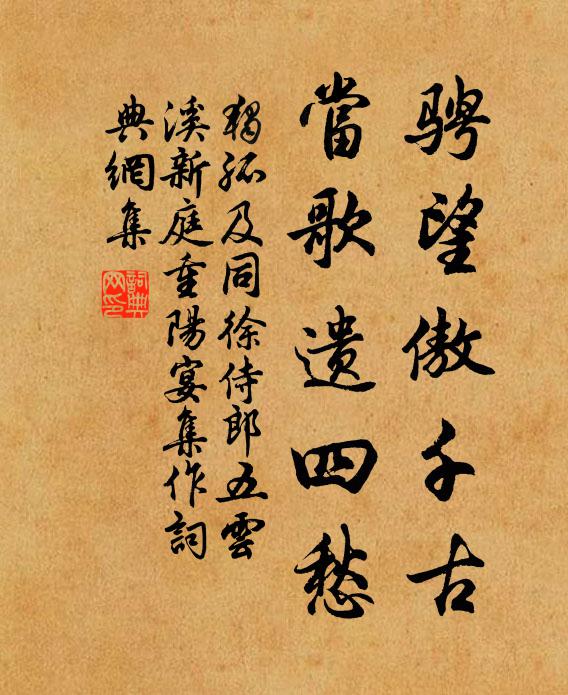 骋望傲千古
當歌遗四愁
獨孤及同徐侍郎五雲
溪新庭重陽宴集作詞
典網集
詞典網印